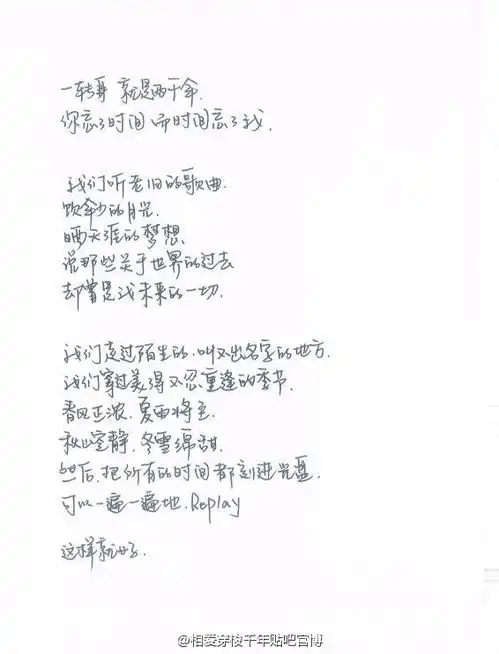 一转身 就是两千年.
你忘了时间 而时间忘了我.
我们听老旧的歌曲.
饮年少的月光.
晒天涯的梦想.
说那些关于世界的过去
却曾是我未来的一切.
我们走过陌生的.叫不出名字的地方.
我们穿过美得不忍重逢的季节.
春风正浓.夏雨将至.
秋山空静.冬雪绵甜.
然后.把所有的时间都刻进光盘.
可以一遍一遍地.Replay
这样就好.
@相爱穿梭千年贴吧官博